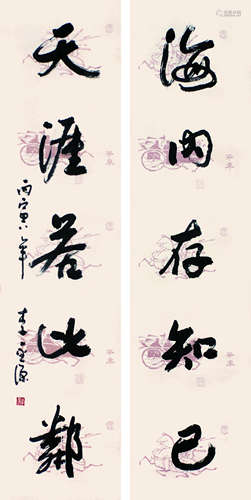 海内存知己
天涯若比鄰
丙寅八年